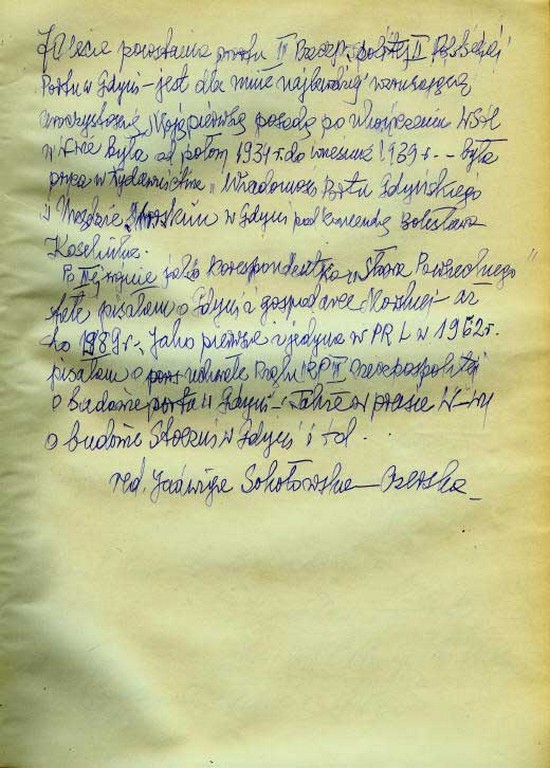 70 lecie powstania II Rzeczpospolitej II
Portu w Gdyni – jest dla mnie najbardziej wzruszającą
uroczystością. Moją pierwszą posadą po ukończeniu WSH
w była od połowy 1937 r. do września 1939 r. – była
praca w Wydawnictwie „Wiadomości Portu Gdyńskiego
w Urzędzie Morskim w Gdyni pod Bolesława
Koselnika.
Po II ej wojnie jako Korespondentka „Słowa Powszechnego"
stale pisałam o Gdyni i gospodarce Morskiej aż
do 1989 r. Jako pierwsza i jedyna w PRL w 1962 r.
pisałam o uchwale Rządu RP II Rzeczpospolitej
o budowie portu w Gdyni – także w prasie W-wy
o budowie Stoczni w Gdyni i td.
red. Jadwiga Sokołowska –